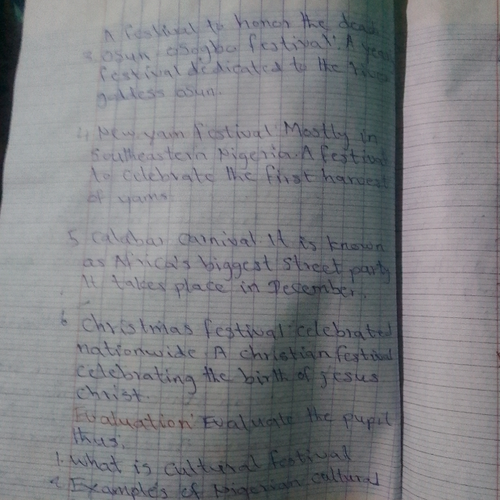 A festival to honor the dead
3. Osun Osogbo festival: A
festival dedicated to the river
goddess osun.
4. New yam festival: Mostly in
Southeastern Nigeria. A festival
to celebrate the first harvest
of yams
5. Calabar carnival It is known
as Africa's biggest street party
It takes place in December.
6 Christmas festival: celebrated
nationwide A christian festival
celebrating the birth of Jesus
christ.
Evaluation: Evaluate the pupil
thus.
1. What is cultural festival
2. Examples of Nigerian cultural